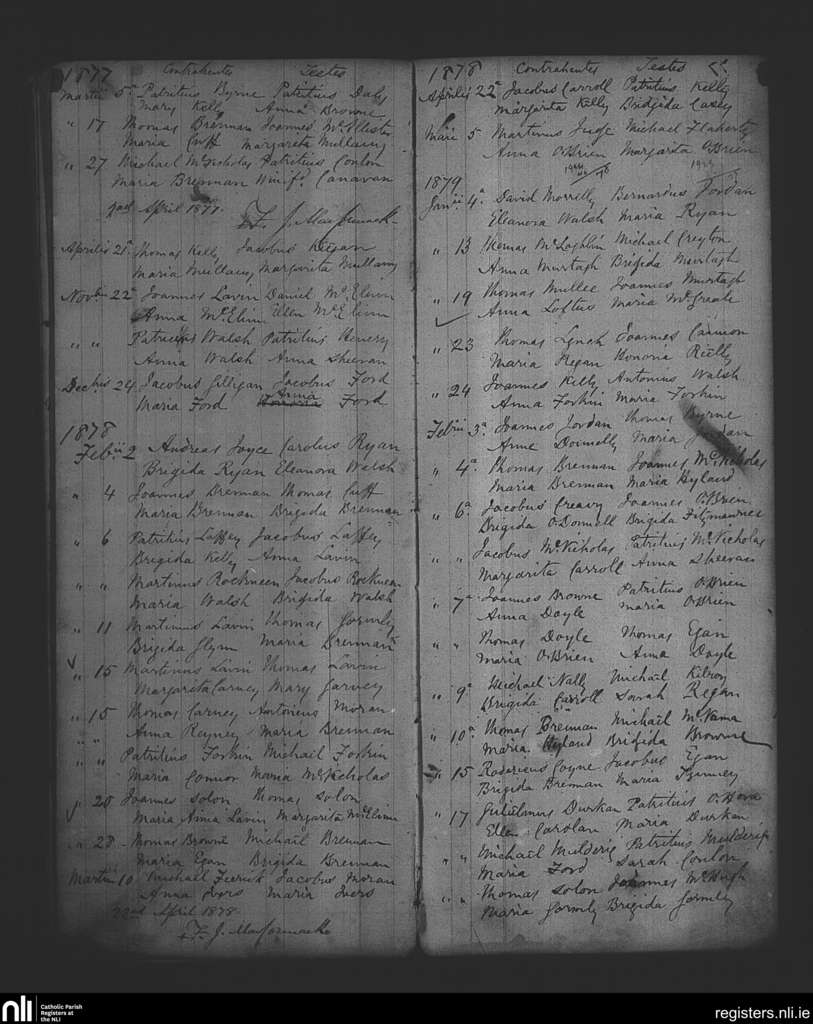 1877 Contrahentes Testes
Martii 5a Patritius Byrne Patritius Daly
Mary Kelly Anna Browne
" 17 Thomas Brennan Joannes McAllister
Maria Cuff Margareta Mullany
" 27 Michael McNicholas Patritius Conlon
Maria Brennan Winifd. Canavan
April 1877
F. J. MacCormack
Aprilis 21a Thomas Kelly Jacobus Keegan
Maria Mullany Margarita Mullany
Novbris 22a Joannes Lavin Daniel McElinn
Anna McElinn Ellen McElinn
" " Patricius Walsh Patritius Henery
Anna Walsh Anna Sheeran
Decbris 24 Jacobus Gilligan Jacobus Ford
Anna
Maria Ford Honoria Ford
1878
Febrii 2 Andreas Joyce Carolus Ryan
Brigida Ryan Eleanora Walsh
" 4 Joannes Brennan Thomas Cuff
Maria Brennan Brigida Brennan
" 6 Patritius Laffey Jacobus Laffey
Brigida Kelly Anna Lavin
" " Martinus Rockneen Jacobus Rockneen
Maria Walsh Brigida Walsh
" 11 Martinus Lavin Thomas Gormly
Brigida Glynn Maria Brennan
" 15 Martinus Lavin Thomas Lavin
Margarita Carney Mary Garvey
" 15 Thomas Carney Antonius Moran
Anna Maria Brennan
" " Patritius Forkin Michael Forkin
Maria Connor Maria McNicholas
" 20 Joannes Solon Thomas Solon
Maria Anna Lavin Margarita McElinn
" 28 Thomas Browne Michael Brennan
Maria Egan Brigida Brennan
Martii 10 Michael Feerick Jacobus Moran
Anna Ivers Maria Ivers
22nd April 1878
F. J. MacCormack
1878 Contrahentes Testes
Aprilis 22a Jacobus Carroll Patritius Kelly
Margarita Kelly Bridgida Casey
Maii 5 Martinus Judge Michael Flaherty
Anna O'Brien Margarita O'Brien
1879
Janrii 4a David Morrilly Bernardus Jordan
Eleanora Walsh Maria Ryan
" 13 Thomas McLoghlin Michael Creyton
Anna Murtagh Brigida Murtagh
" 19 Thomas Mullee Joannes Murtagh
Anna Loftus Maria
" 23 Thomas Lynch Joannes Cannon
Maria Regan Honoria Reilly
" 24 Joannes Kelly Antonius Walsh
Anna Forkin Maria Forkin
Febrii 3a Joannes Jordan Thomas Byrne
Anne Donnelly Maria Jordan
" 4a Thomas Brennan Joannes McNicholas
Maria Brennan Maria Hyland
" 6a Jacobus Creavy Joannes O'Brien
Brigida O'Donnell Brigida Fitzmaurice
" " Jacobus McNicholas Patritius McNicholas
Margarita Carroll Anna Sheeran
" 7a Joannes Browne Patritus O'Brien
Anna Doyle Maria O'Brien
" " Thomas Doyle Thomas Egan
Maria O'Brien Anna Doyle
" 9a Michael Nally Michail Kilroy
Brigida Carroll Sarah Regan
" 10a Thomas Brennan Michail McNama
Maria Hyland Brigida Browne
" 15 Rodericus Coyne Jacobus Egan
Brigida Brennan Maria
" 17 Gulielmus Durkan Patritius O'Hara
Ellen Carolan Maria Durkan
" " Michail Mulderig Patritius Mulderig
Maria Ford Sarah Conlon
" " Thomas Solon Joannes McHugh
Maria Gormly Brigida Gormly
nli Catholic Parish
Registers at
the NLI
registers.nli.ie